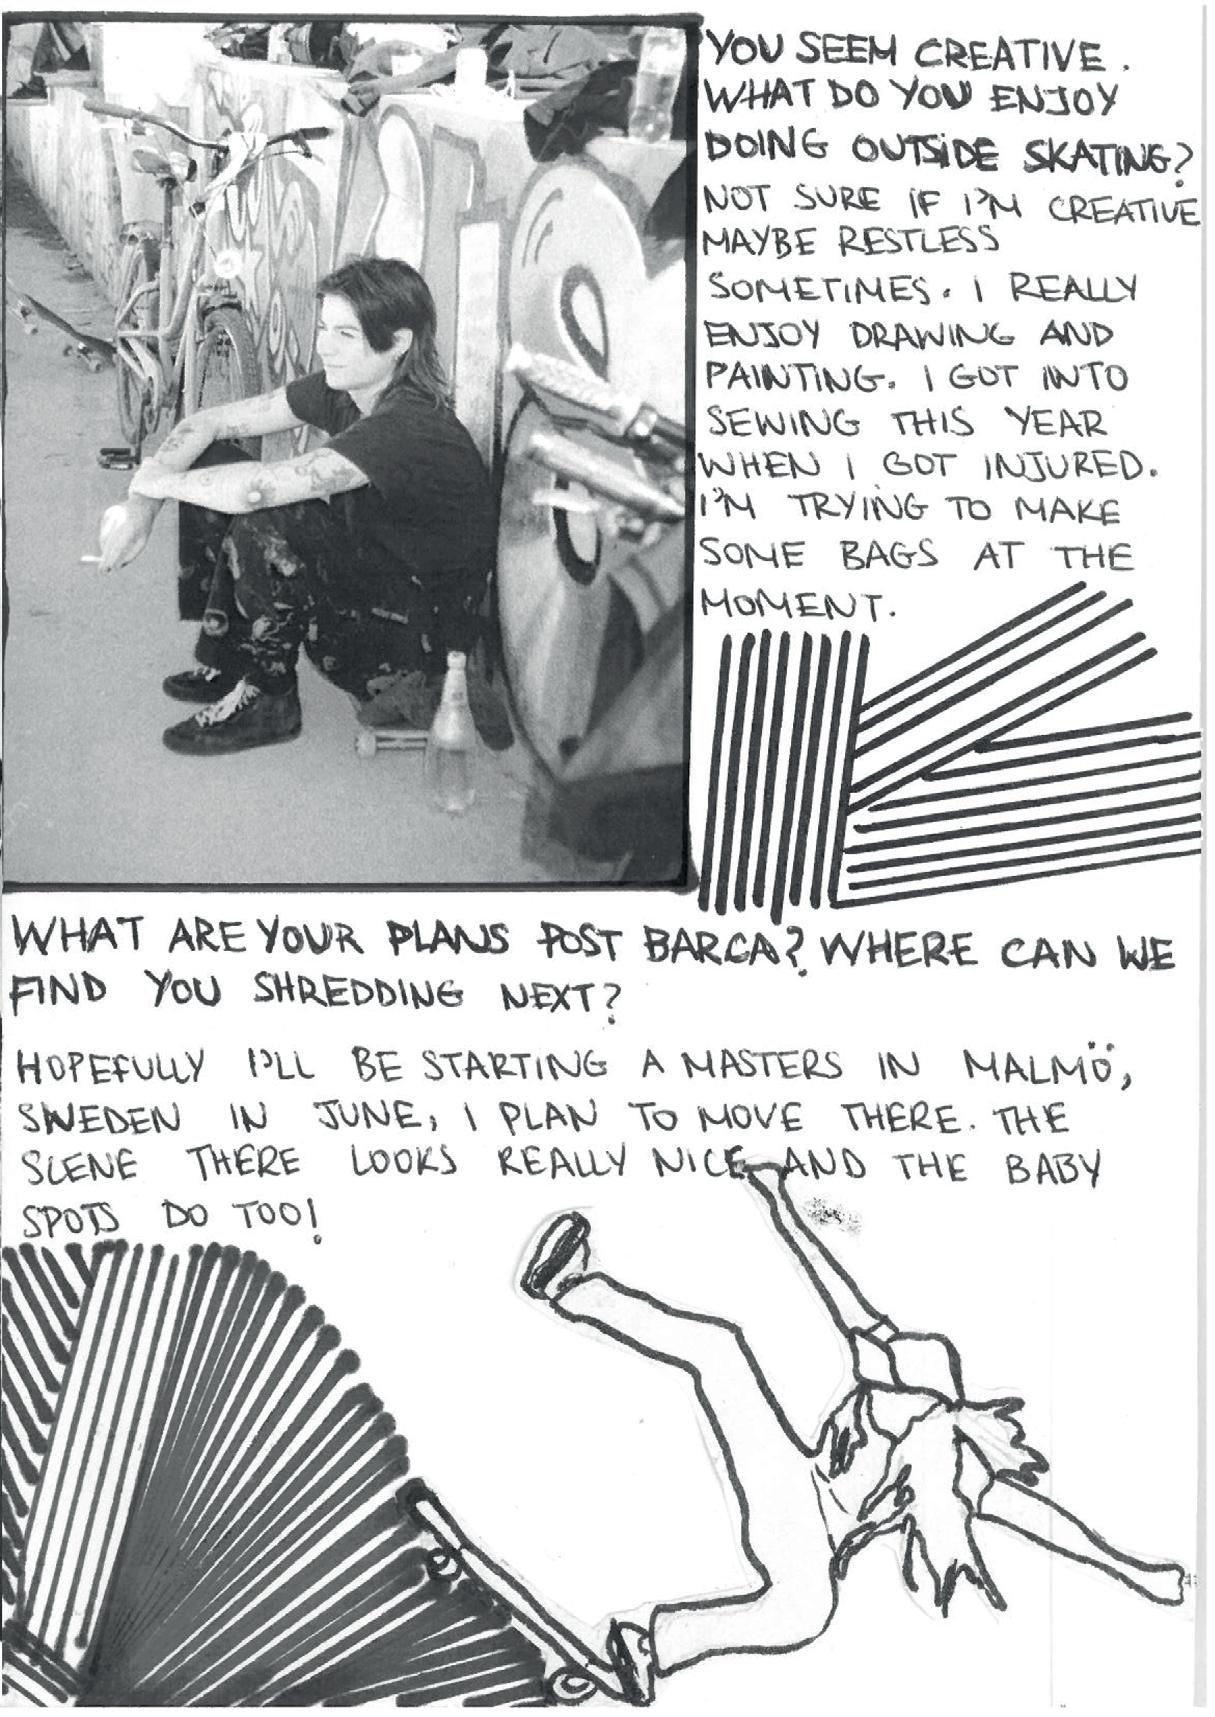 YOU SEEM CREATIVE.
WHAT DO YOU ENJOY
DOING OUTSIDE SKATING?
NOT SURE IF I'M CREATIVE
MAYBE RESTLESS
SOMETIMES. I REALLY
ENJOY DRAWING AND
PAINTING. I GOT INTO
SEWING THIS YEAR
WHEN I GOT INJURED.
I'M TRYING TO MAKE
SOME BAGS AT THE
MOMENT.
WHAT ARE YOUR PLANS POST BARCA? WHERE CAN WE
FIND YOU SHREDDING NEXT?
HOPEFULLY I'LL BE STARTING A MASTERS IN MALMÖ,
SWEDEN IN JUNE, I PLAN TO MOVE THERE. THE
SCENE THERE LOOKS REALLY NICE AND THE BABY
SPOTS DO TOO!